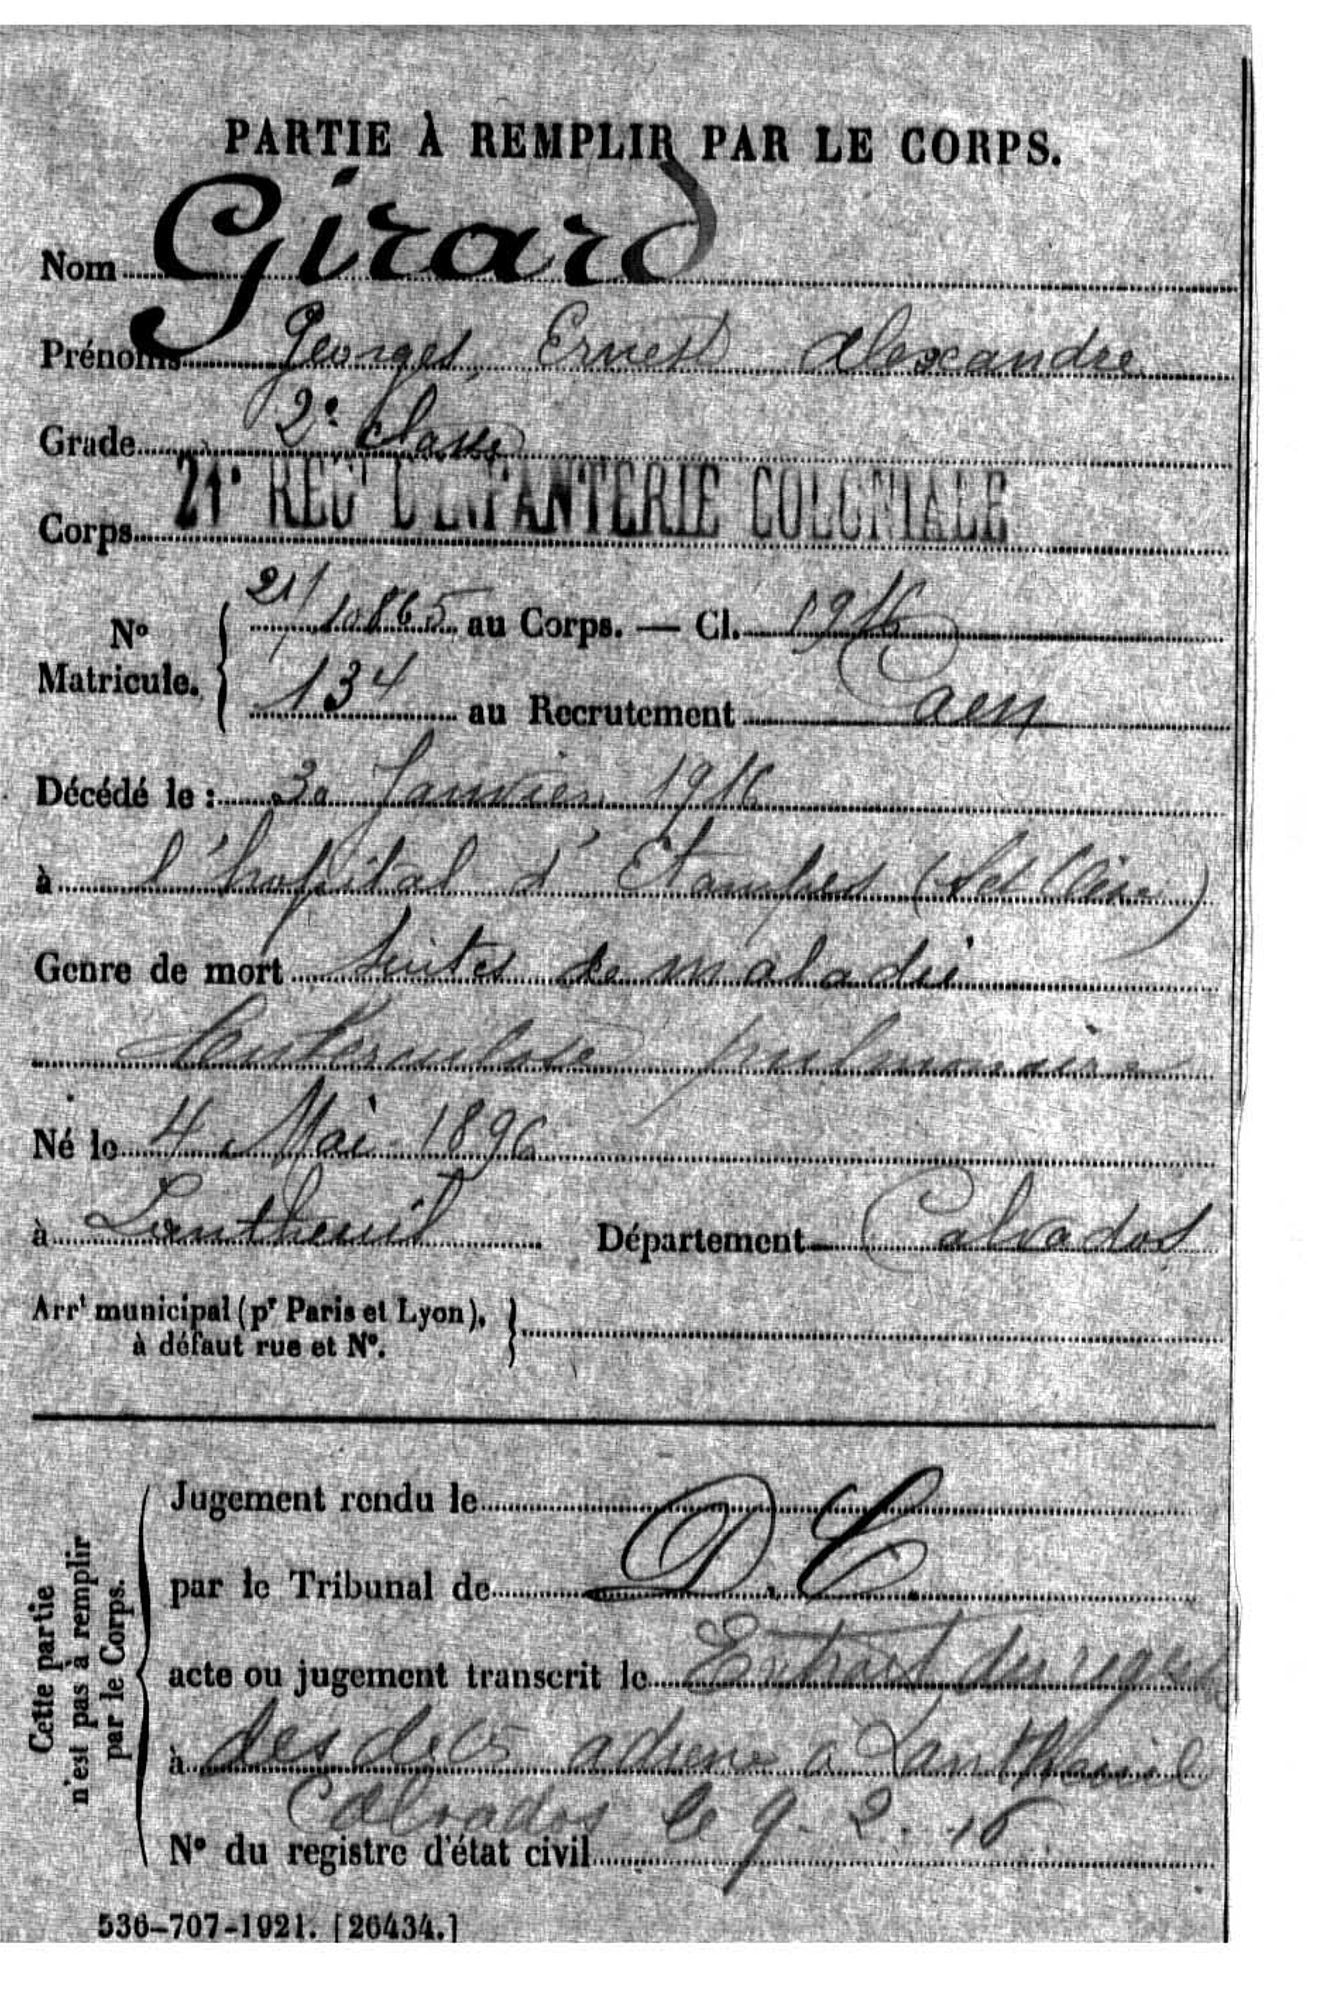 PARTIE À REMPLIR PAR LE CORPS.
Nom Girard
Prénoms Georges, Ernest Alexandre
Grade 2e classe
Corps 21e REGt D'INFANTERIE COLONIALE
No Matricule. 21/10865 au Corps. — Cl. 1916
134 au Recrutement Caen
Décédé le : 30 Janvier 1916
à l'hopital d'Etampes (Set Oise)
Genre de mort suites de maladie
tuberculose pulmonaire
Né le 4 Mai 1896
à Lantheuil Département Calvados
Arrt municipal (pr Paris et Lyon),
à défaut rue et No.
Cette partie
n'est pas à remplir
par le Corps.
Jugement rendu le
par le Tribunal de D. C.
acte ou jugement transcrit le Extrait du
à des décès adressé a Lantheuil
Calvados le 9. 2. 16
No du registre d'état civil
536-707-1921. [26434.]